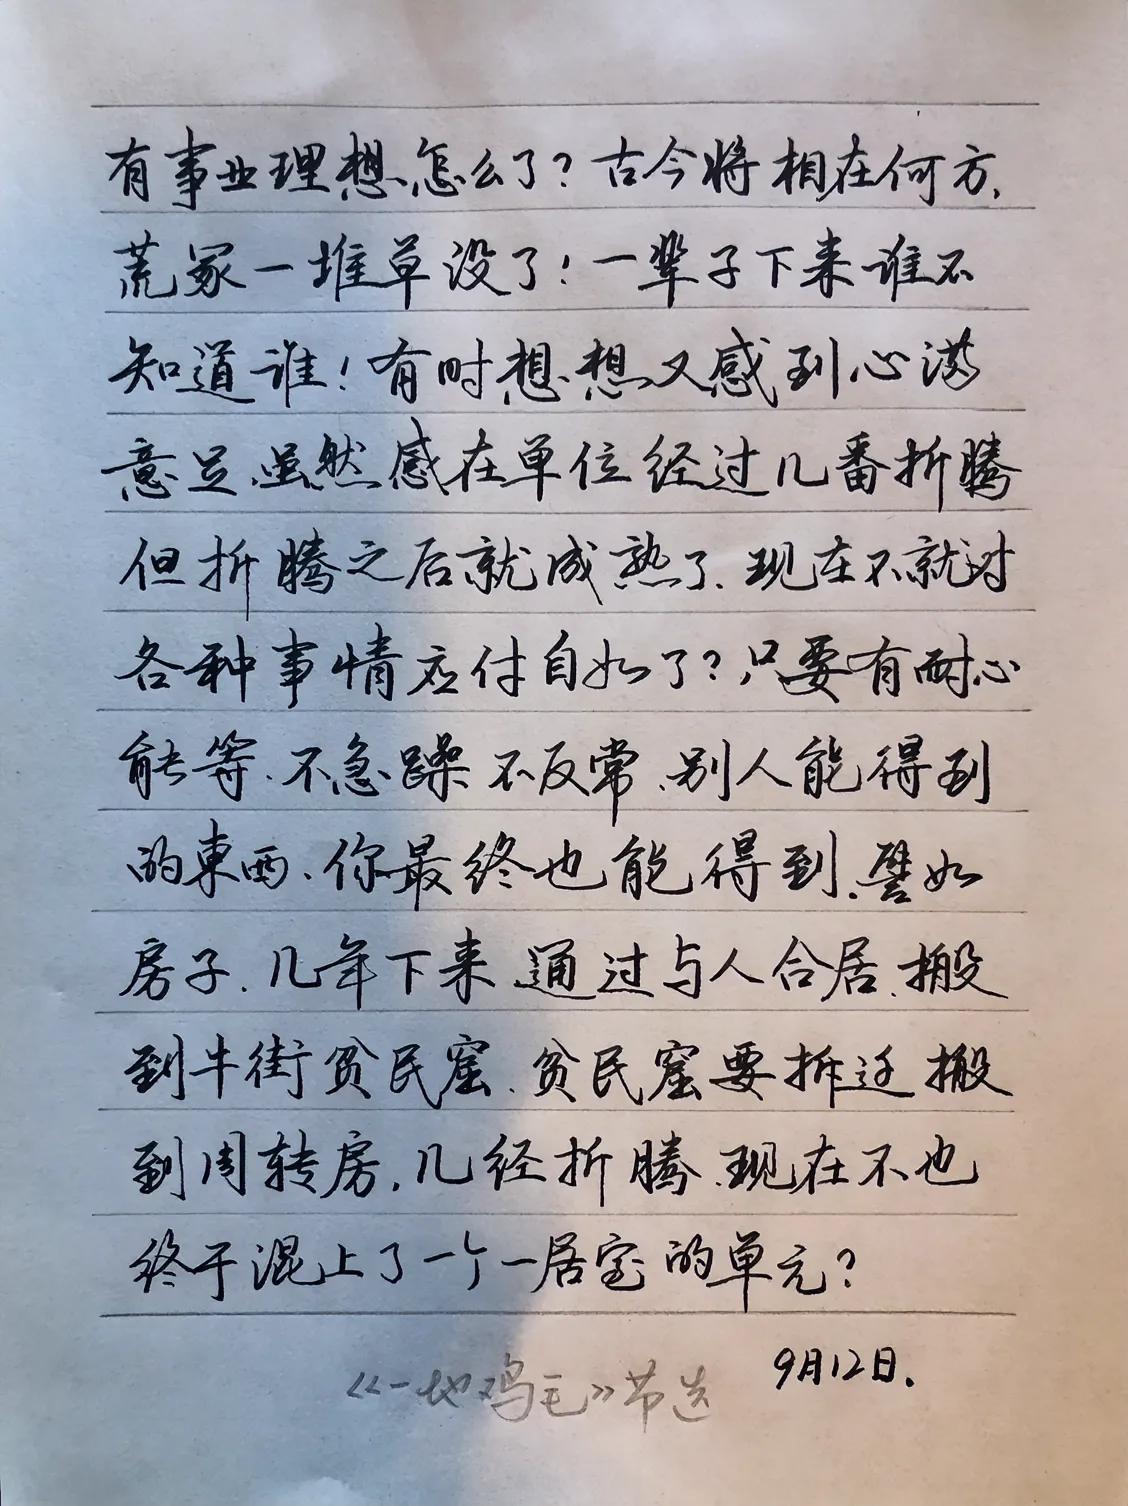 有事业理想怎么了？古今将相在何方，
荒冢一堆草没了！一辈子下来谁不
知道谁！有时想想又感到心满
意足，虽然感在单位经过几番折腾
但折腾之后就成熟了，现在不就对
各种事情应付自如了？只要有耐心
能等、不急躁不反常、别人能得到
的東西、你最终也能得到，譬如
房子，几年下来，通过与人合居，搬
到牛街贫民窟，贫民窟要拆迁搬
到周转房，几经折腾，现在不也
终于混上了一个一居室的单元？
9月12日.
《一地鸡毛》节选